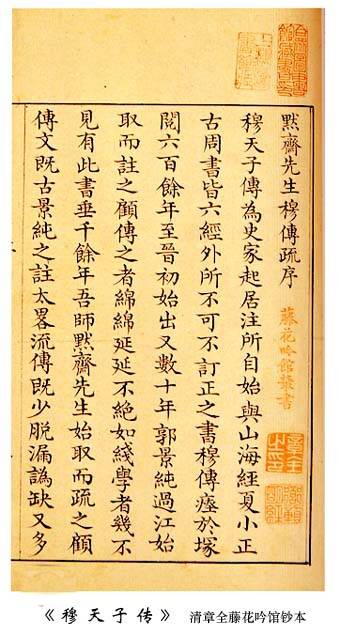 默齋先生穆傳疏序
藤花吟館叢書
章全之印
穆天子傳為史家起居注所自始與山海經夏小正
古周書皆六經外所不可不訂正之書穆傳瘞於塚
閱六百餘年至晉初始出又數十年郭景純過江始
取而註之顧傳之者綿綿延延不絕如綫學者幾不
見有此書垂千餘年吾師默齋先生始取而疏之顧
傳文既古景純之註太畧流傳既少脫漏譌缺又多
《穆天子传》 清章全藤花吟馆钞本